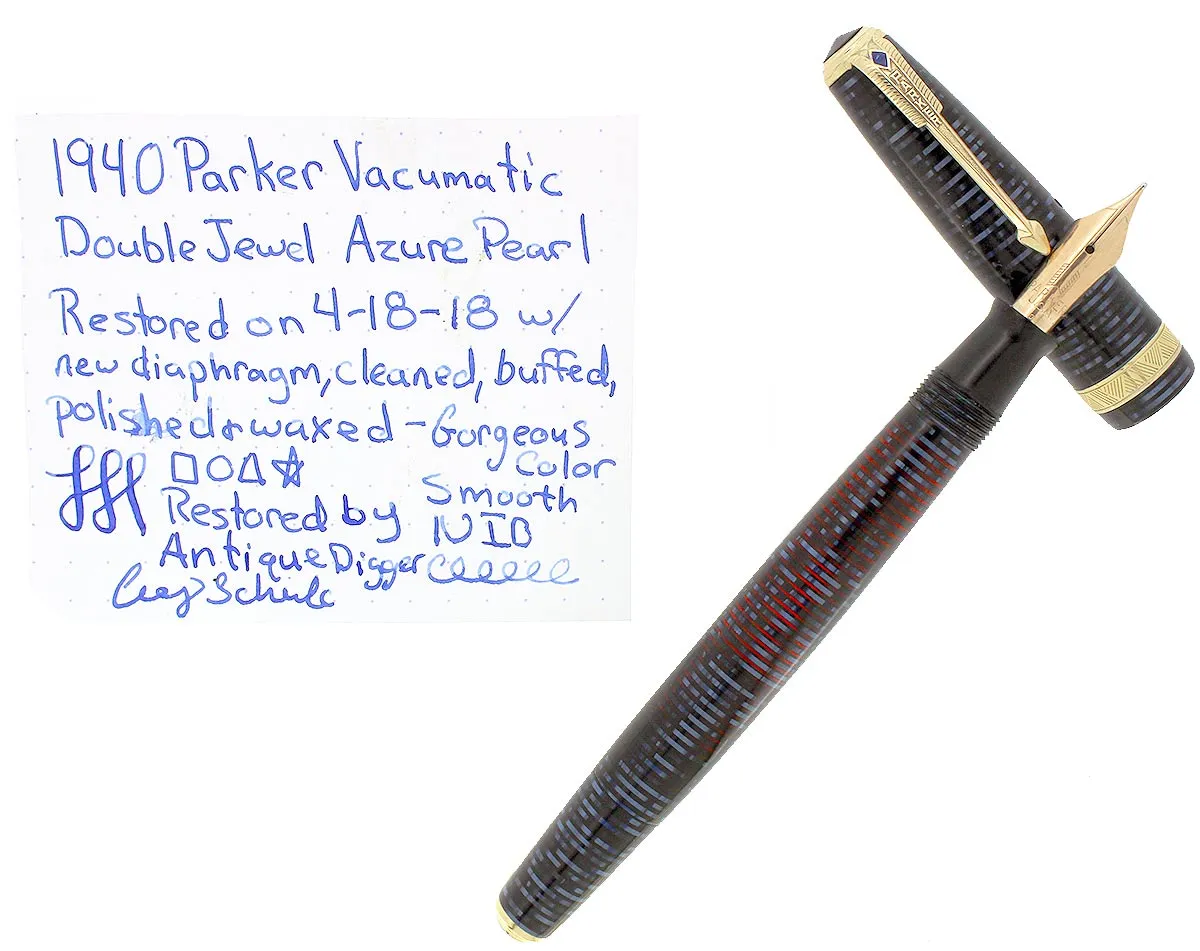 1940 Parker Vacumatic
Double Jewel Azure Pearl
Restored on 4-18-18 w/
new diaphragm, cleaned, buffed,
polished & waxed - Gorgeous
Color
Smooth
NIB
Restored by
Antique Digger
PARKER